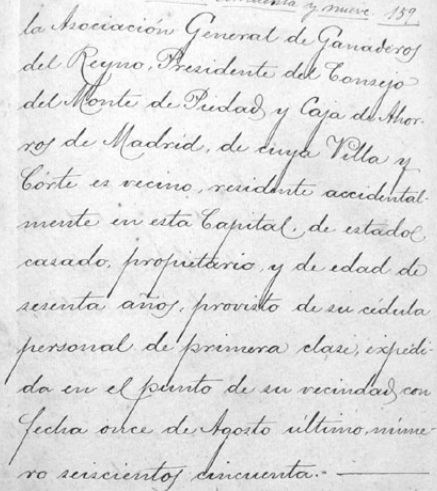 cincuenta y nueve 159
la Asociación General de Ganaderos
del Reyno, Presidente del Consejo
del Monte de Piedad y Caja de Ahor-
ros de Madrid, de cuya Villa y
Córte es vecino, residente accidental-
mente en esta Capital, de estado
casado, propietario, y de edad de
sesenta años, provisto de su cédula
personal de primera clase, expedi-
da en el punto de su vecindad, con
fecha once de Agosto último, núme-
ro seiscientos cincuenta.-